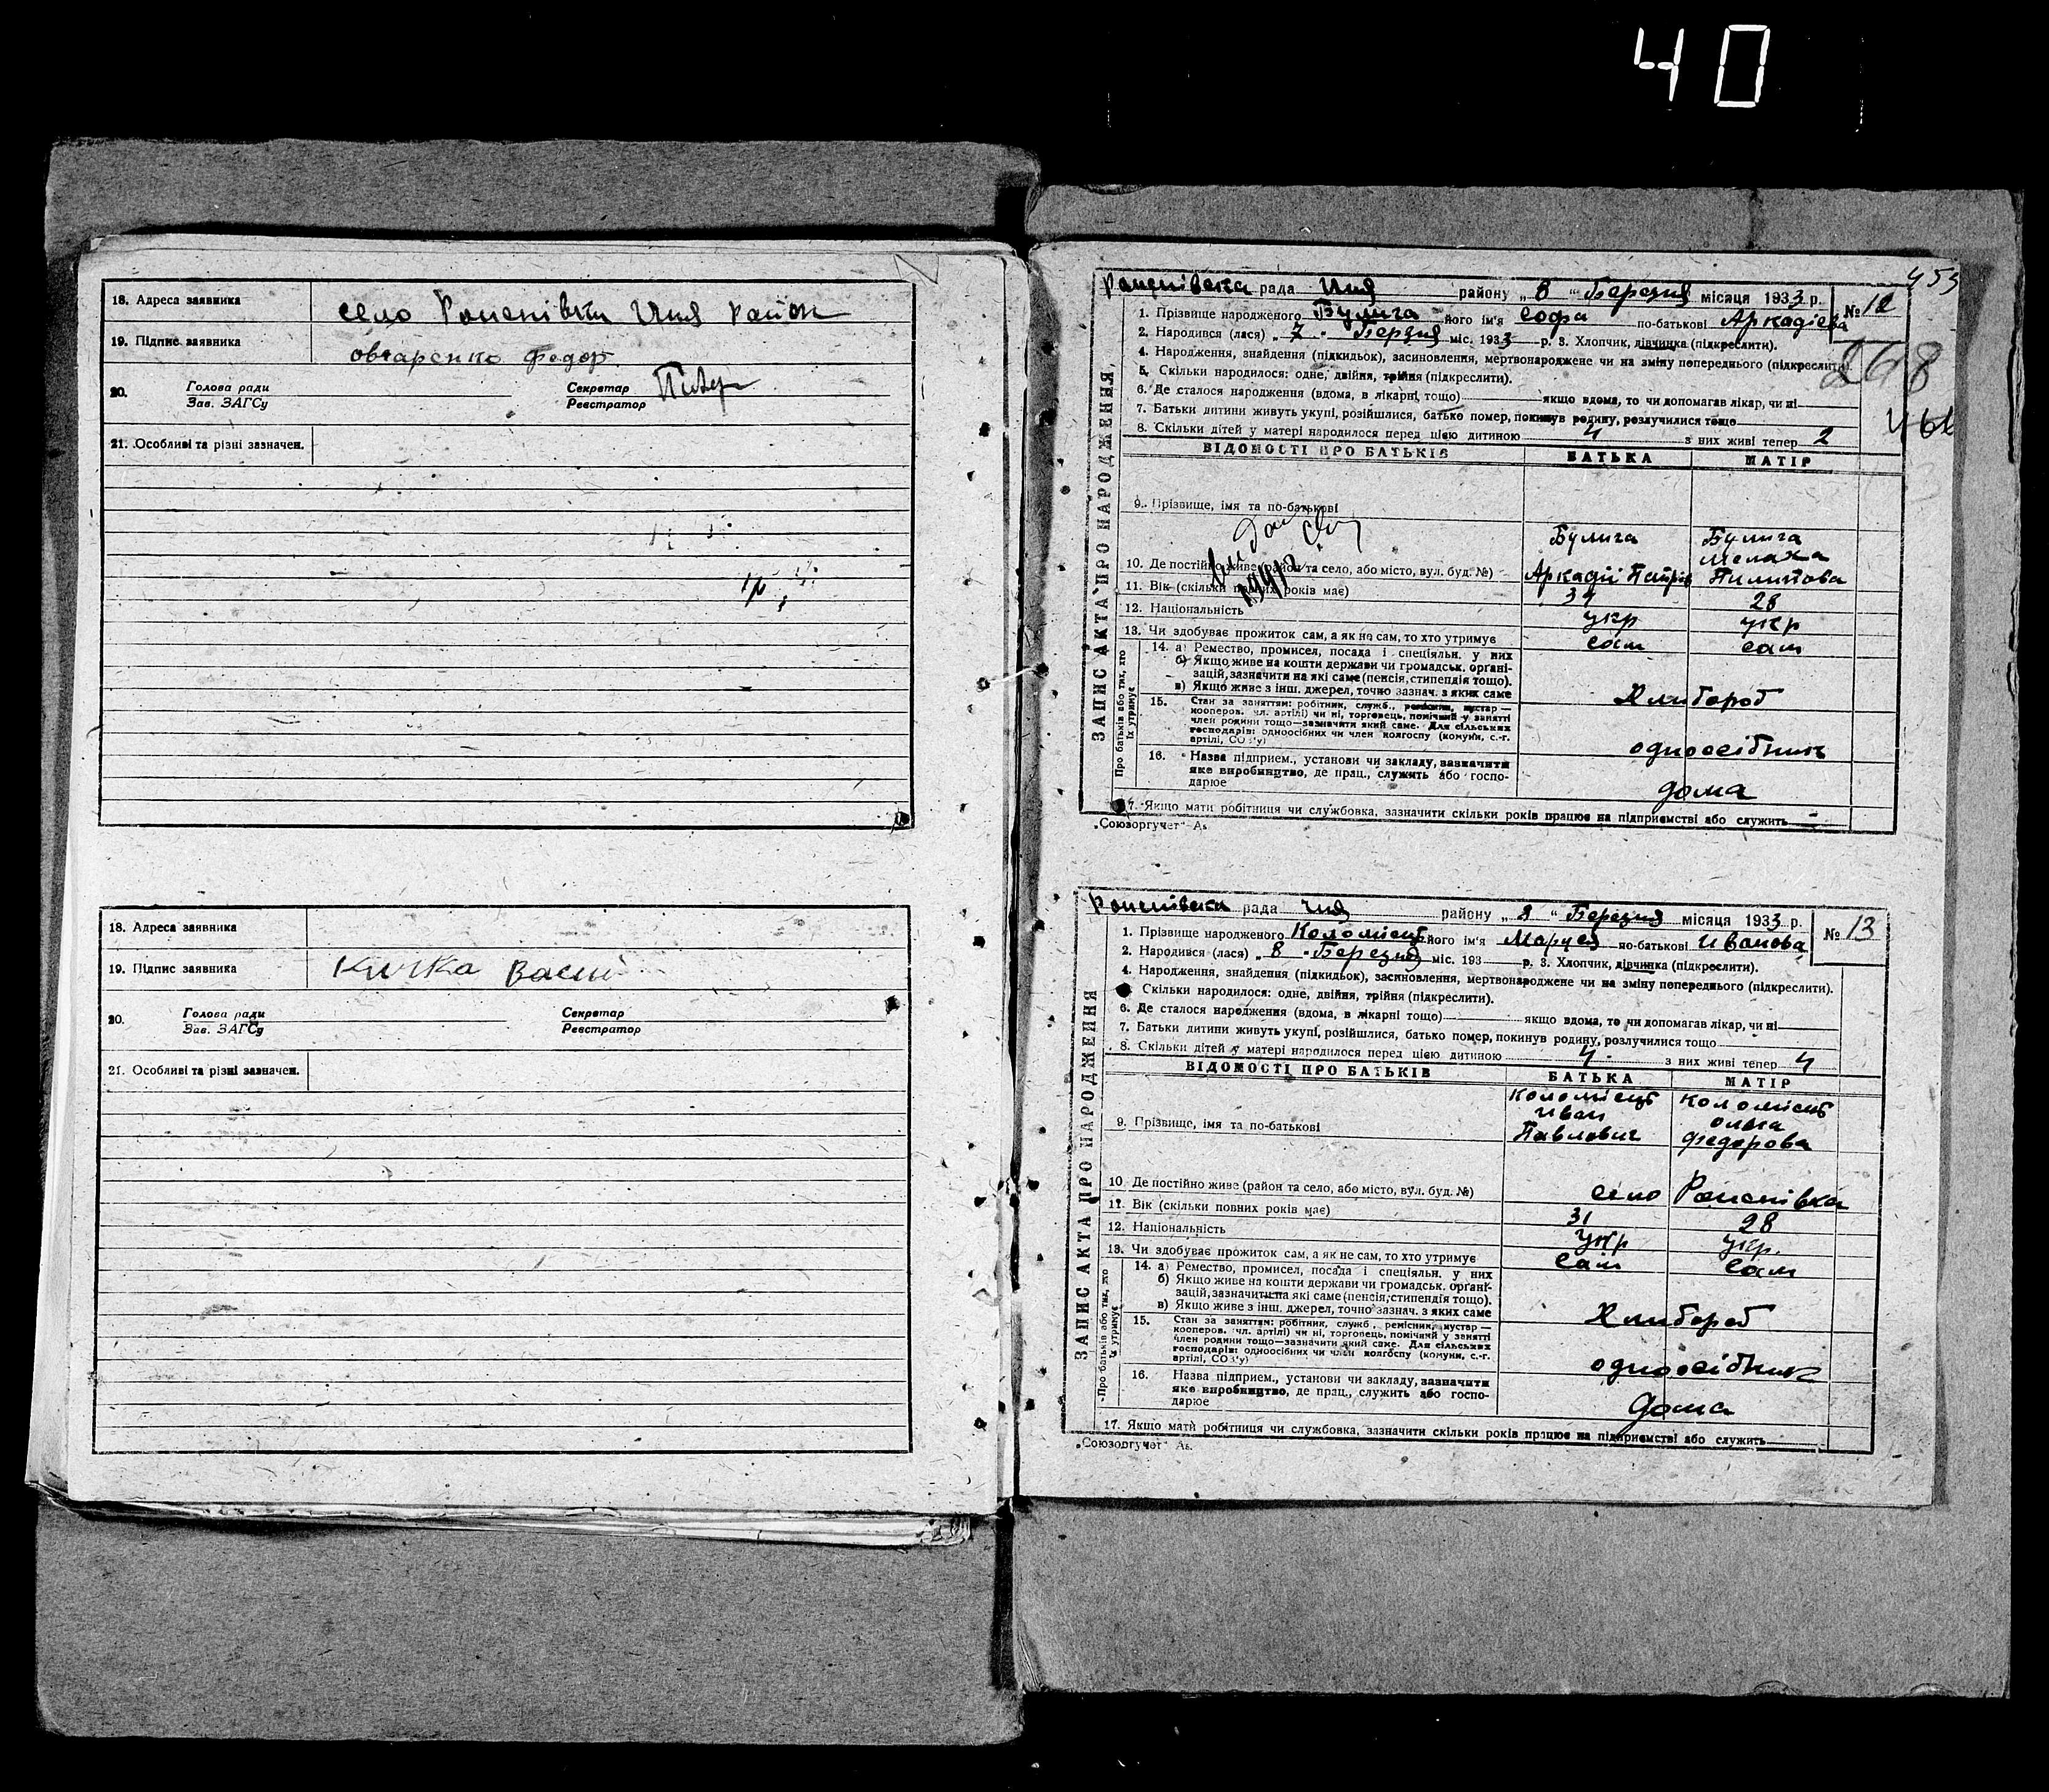 40
18. Адреса заявника село район
19. Підпис заявника овчаренко федор
20. Голова ради Секретар
Зав. ЗАГСу Реєстратор
21. Особливі та різні зазначен.
18. Адреса заявника
19. Підпис заявника Кичка Васил
20. Голова ради Секретар
Зав. ЗАГСу Реєстратор
21. Особливі та різні зазначен.
453
ЗАПИС АКТА ПРО НАРОДЖЕННЯ
рада району „ 8 “ Березня місяця 1933 р. № 12
1. Прізвище народженого Булига його ім'я Софа по-батькові Аркадієва
2. Народився (лася) „ 7 Березня міс. 1933 р. 3. Хлопчик, дівчинка (підкреслити).
4. Народження, знайдення (підкидьок), засиновлення, мертвонароджене чи на зміну попереднього (підкреслити).
268
5. Скільки народилося: одне, двійня, трійня (підкреслити).
6. Де сталося народження (вдома, в лікарні, тощо) якщо вдома, то чи допомагав лікар, чи ні
7. Батьки дитини живуть укупі, розійшлися, батько помер, покинув родину, розлучилися тощо
8. Скільки дітей у матері народилося перед цією дитиною 4 з них живі тепер 2
ВІДОМОСТІ ПРО БАТЬКІВ БАТЬКА МАТІР
9. Прізвище, імя та по-батькові
Булига Булига
Мелаха
10. Де постійно живе (район та село, або місто, вул. буд. №) Аркадії Пилипова
11. Вік (скільки повних років має) 28
12. Національність укр укр
13. Чи здобуває прожиток сам, а як не сам, то хто утримує сам сам
Про батьків або тих, хто їх утримує
14. а) Ремество, промисел, посада і спеціяльн. у них
б) Якщо живе на кошти держави чи громадськ. органі-
зацій, зазначити на які саме (пенсія, стипендія тощо).
в) Якщо живе з інш. джерел, точно зазнач. з яких саме Хлибороб
15. Стан за заняттям: робітник, служб., ремісник, кустар—
кооперов. чл. артілі) чи ні, торговець, помічний у занятті
член родини тощо—зазначити який саме. Для сільських
господарів: одноосібних чи член колгоспу (комуни, с.-г.
артілі, СОЗ'у) одноосібник
16. Назва підприєм., установи чи закладу, зазначити
яке виробництво, де прац., служить або госпо-
дарює дома
17. Якщо мати робітниця чи службовка, зазначити скільки років працює на підприємстві або служить -
„Союзоргучет“
ЗАПИС АКТА ПРО НАРОДЖЕННЯ
рада району „ “ Березня місяця 1933 р. № 13
1. Прізвище народженого Коломієць його ім'я Маруся по-батькові Иванова
2. Народився (лася) „ 8 Березня міс. 193 р. 3. Хлопчик, дівчинка (підкреслити).
4. Народження, знайдення (підкидьок), засиновлення, мертвонароджене чи на зміну попереднього (підкреслити).
Скільки народилося: одне, двійня, трійня (підкреслити).
6. Де сталося народження (вдома, в лікарні тощо) якщо вдома, то чи допомагав лікар, чи ні
7. Батьки дитини живуть укупі, розійшлися, батько помер, покинув родину, розлучилися тощо
8. Скільки дітей у матері народилося перед цією дитиною 4 з них живі тепер 4
ВІДОМОСТІ ПРО БАТЬКІВ БАТЬКА МАТІР
Коломієць Коломієць
Иван
9. Прізвище, імя та по-батькові Павлович Федорова
10. Де постійно живе (район та село, або місто, вул. буд. №) село
11. Вік (скільки повних років має) 31 28
12. Національність укр укр.
13. Чи здобуває прожиток сам, а як не сам, то хто утримує сам сам
Про батьків або тих, хто їх утримує
14. а) Ремество, промисел, посада і спеціяльн. у них
б) Якщо живе на кошти держави чи громадськ. органі-
зацій, зазначити на які саме (пенсія, стипендія тощо).
в) Якщо живе з інш. джерел, точно зазнач. з яких саме Хлибороб
15. Стан за заняттям: робітник, служб., ремісник, кустар—
кооперов. чл. артілі) чи ні, торговець, помічний у занятті
член родини тощо—зазначити який саме. Для сільських
господарів: одноосібних чи член колгоспу (комуни, с.-г.
артілі, СОЗ'у) одноосібник
16. Назва підприєм., установи чи закладу, зазначити
яке виробництво, де прац., служить або госпо-
дарює Дома
17. Якщо мати робітниця чи службовка, зазначити скільки років працює на підприємстві або служить
„Союзоргучет“